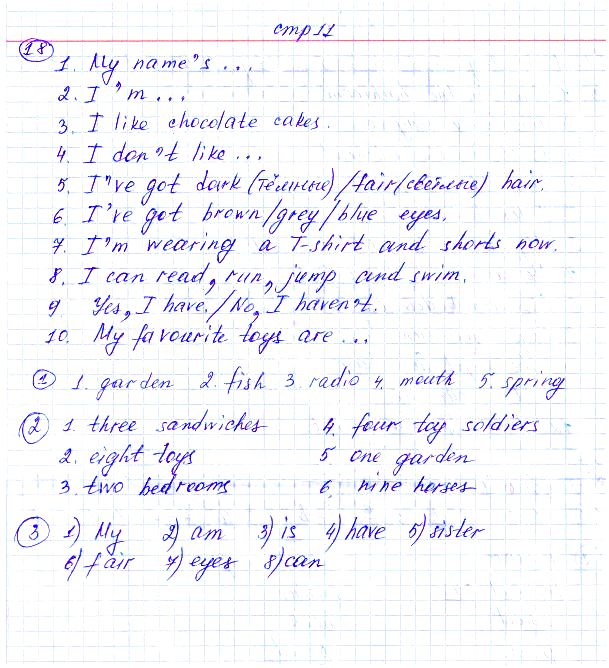 стр 11
18 1. My name's ...
2. I'm ...
3. I like chocolate cakes.
4. I don't like ...
5. I've got dark (тёмные) / fair (светлые) hair.
6. I've got brown/grey/blue eyes.
7. I'm wearing a T-shirt and shorts now.
8. I can read, run, jump and swim.
9 Yes, I have. / No, I haven't.
10. My favourite toys are ...
1 1. garden 2. fish 3. radio 4. mouth 5. spring
2 1. three sandwiches 4. four toy soldiers
2. eight toys 5. one garden
3. two bedrooms 6. nine horses
3 1) My 2) am 3) is 4) have 5) sister
6) fair 7) eyes 8) can